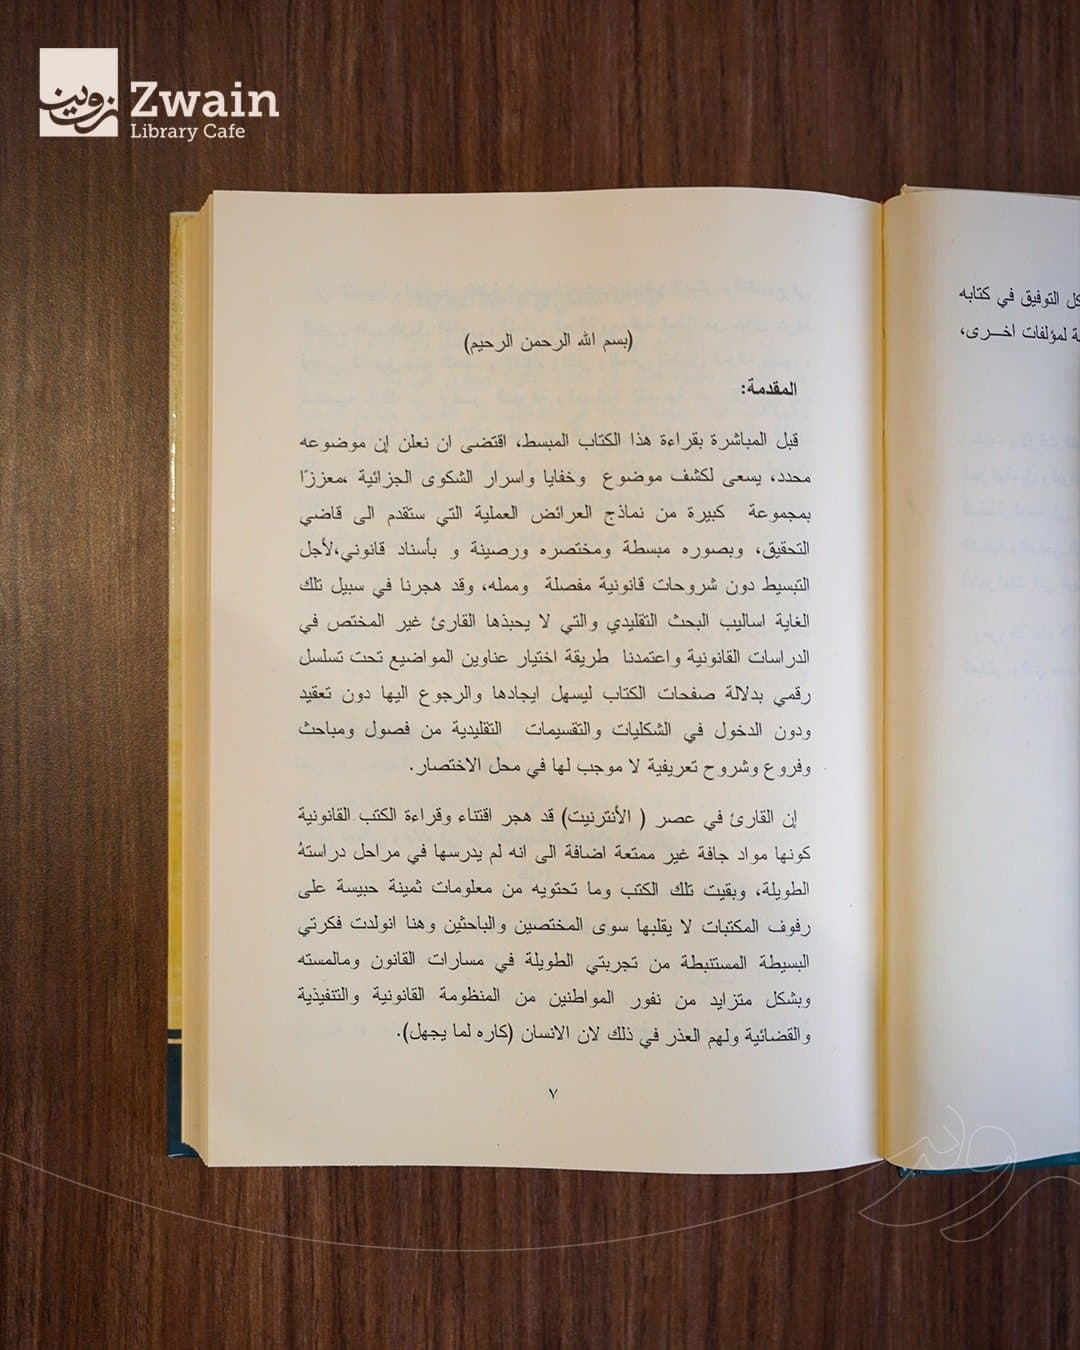 زوين
Zwain
Library Cafe
كل التوفيق في كتابه
لمؤلفات اخرى،
(بسم الله الرحمن الرحيم)
المقدمة:
قبل المباشرة بقراءة هذا الكتاب المبسط، اقتضى ان نعلن إن موضوعه
محدد، يسعى لكشف موضوع وخفايا واسرار الشكوى الجزائية ،معززًا
بمجموعة كبيرة من نماذج العرائض العملية التي ستقدم الى قاضي
التحقيق، وبصوره مبسطة ومختصره ورصينة و بأسناد قانوني،لأجل
التبسيط دون شروحات قانونية مفصلة وممله، وقد هجرنا في سبيل تلك
الغاية اساليب البحث التقليدي والتي لا يحبذها القارئ غير المختص في
الدراسات القانونية واعتمدنا طريقة اختيار عناوين المواضيع تحت تسلسل
رقمي بدلالة صفحات الكتاب ليسهل ايجادها والرجوع اليها دون تعقيد
ودون الدخول في الشكليات والتقسيمات التقليدية من فصول ومباحث
وفروع وشروح تعريفية لا موجب لها في محل الاختصار.
إن القارئ في عصر ( الأنترنيت) قد هجر اقتناء وقراءة الكتب القانونية
كونها مواد جافة غير ممتعة اضافة الى انه لم يدرسها في مراحل دراستهُ
الطويلة، وبقيت تلك الكتب وما تحتويه من معلومات ثمينة حبيسة على
رفوف المكتبات لا يقلبها سوى المختصين والباحثين وهنا انولدت فكرتي
البسيطة المستنبطة من تجربتي الطويلة في مسارات القانون ومالمسته
وبشكل متزايد من نفور المواطنين من المنظومة القانونية والتنفيذية
والقضائية ولهم العذر في ذلك لان الانسان (كاره لما يجهل).
٧